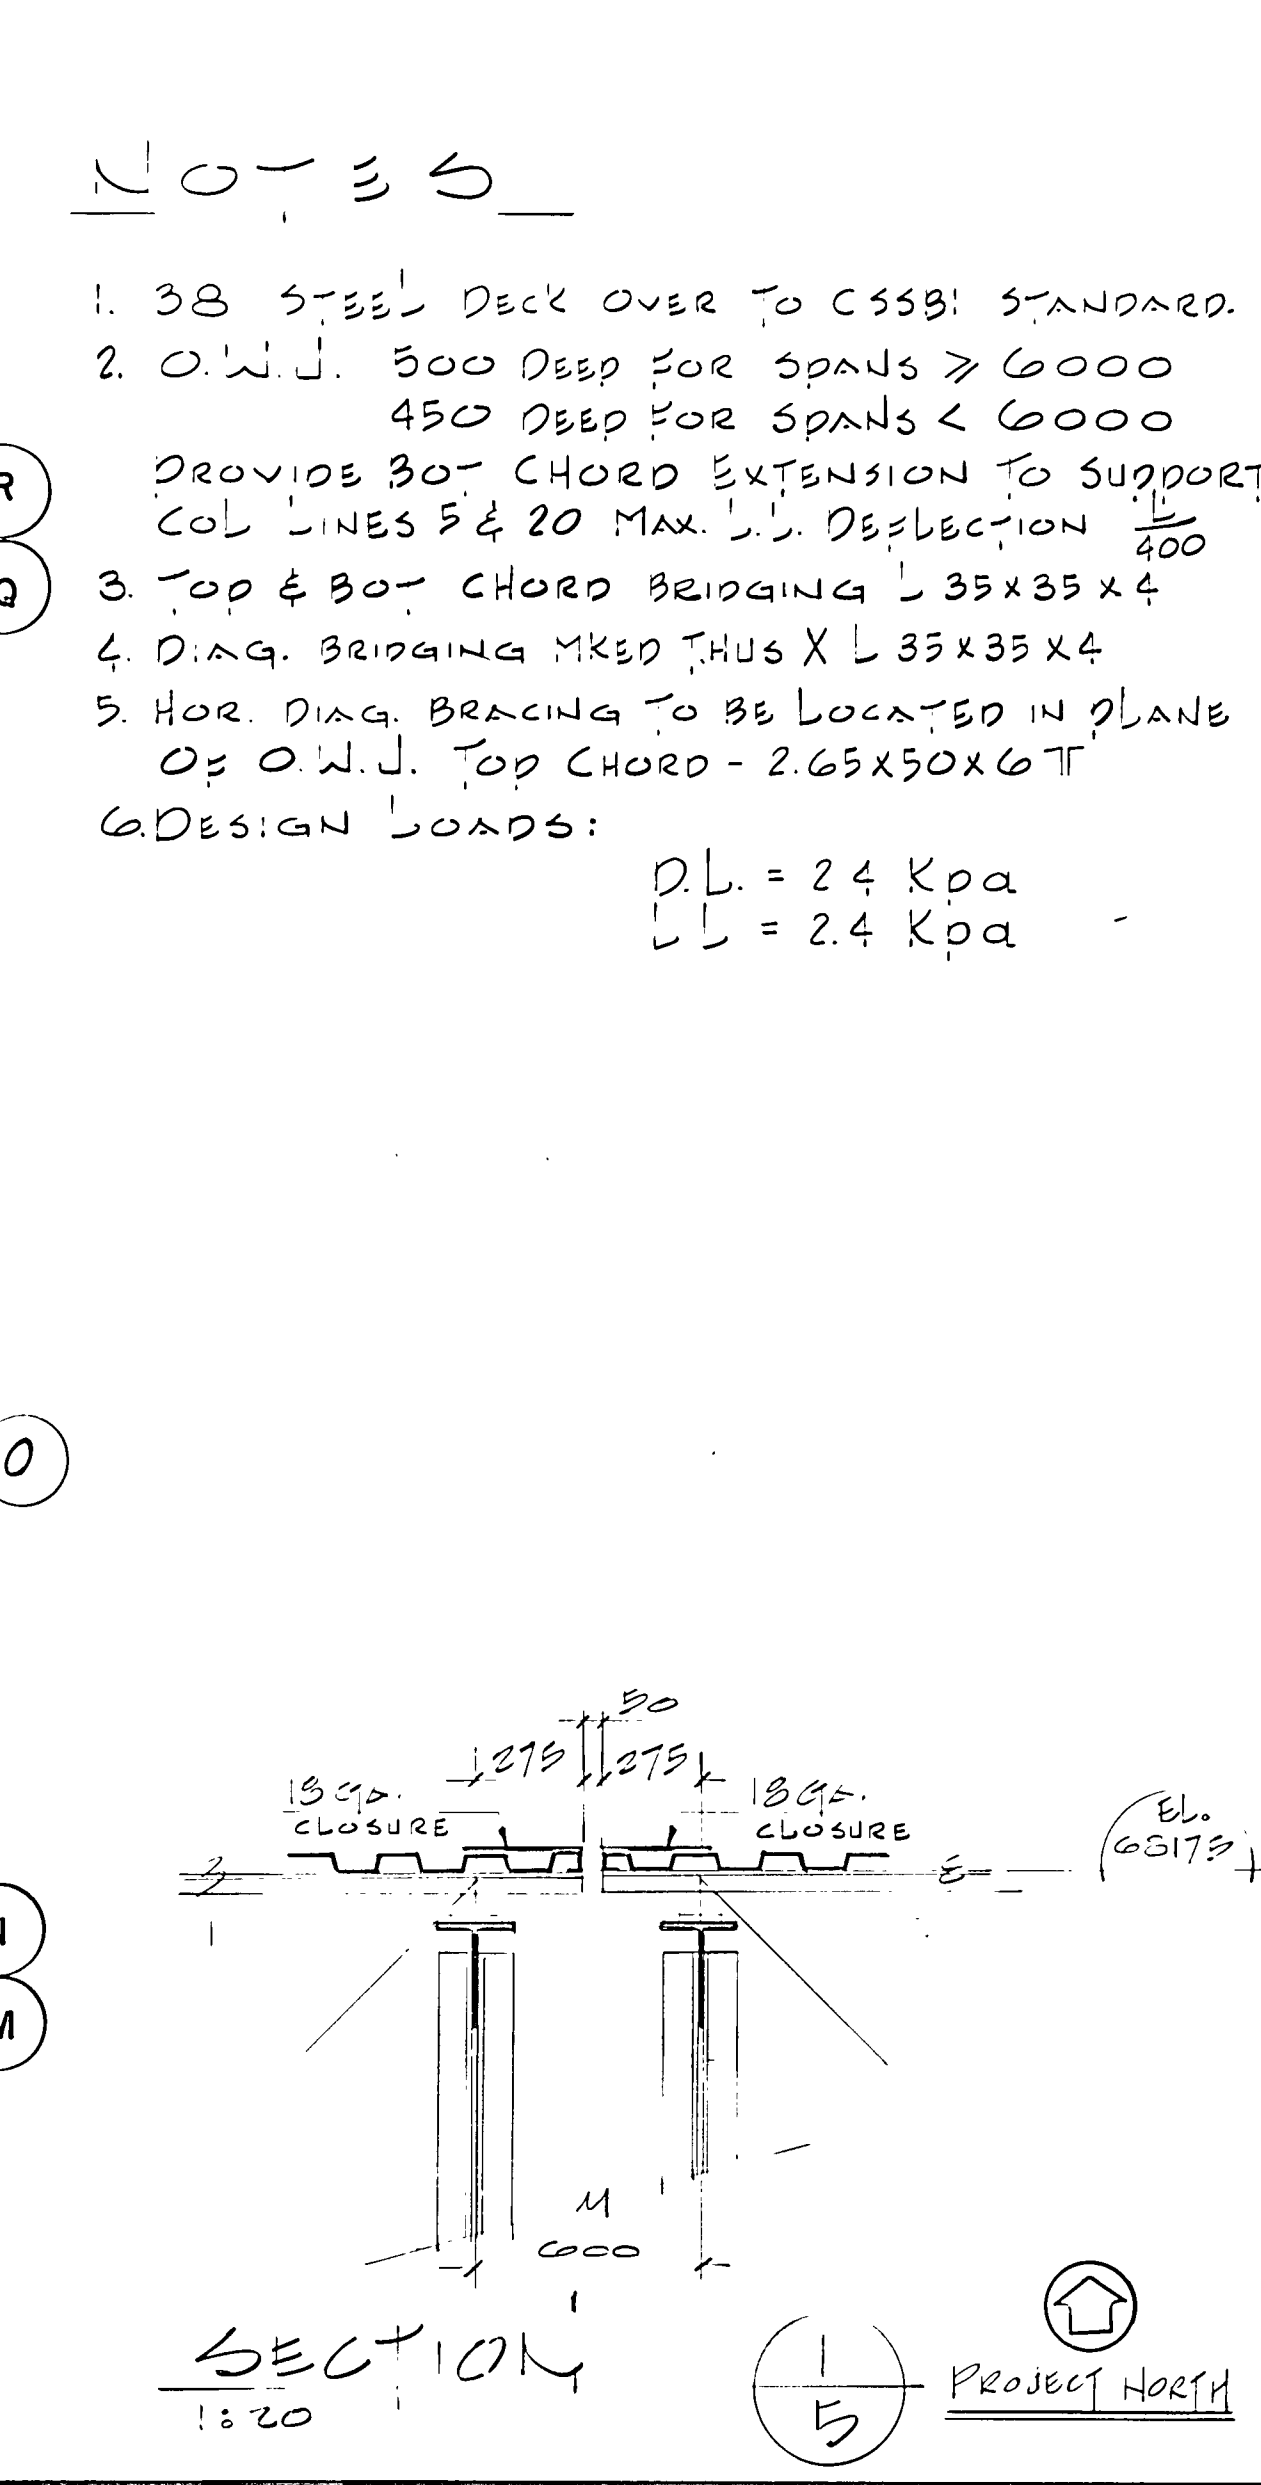 NOTES
1. 38 STEEL DECK OVER TO CSSBI STANDARD.
2. O.W.J. 500 DEEP FOR SPANS ⩾ 6000
450 DEEP FOR SPANS < 6000
R
PROVIDE BOT CHORD EXTENSION TO SUPPORT
COL LINES 5 & 20 MAX. L.L. DEFLECTION L/400
Q
3. TOP & BOT CHORD BRIDGING L 35x35x4
4. DIAG. BRIDGING MKED THUS X L 35x35x4
5. HOR. DIAG. BRACING TO BE LOCATED IN PLANE
OF O.W.J. TOP CHORD - 2.65x50x6 ╥
6. DESIGN LOADS:
D.L. = 2 4 Kpa
LL = 2.4 Kpa
O
50
275 275
18 GA. 18 GA.
CLOSURE CLOSURE
EL.
M
M
600
SECTION
1:20
1
5
PROJECT NORTH